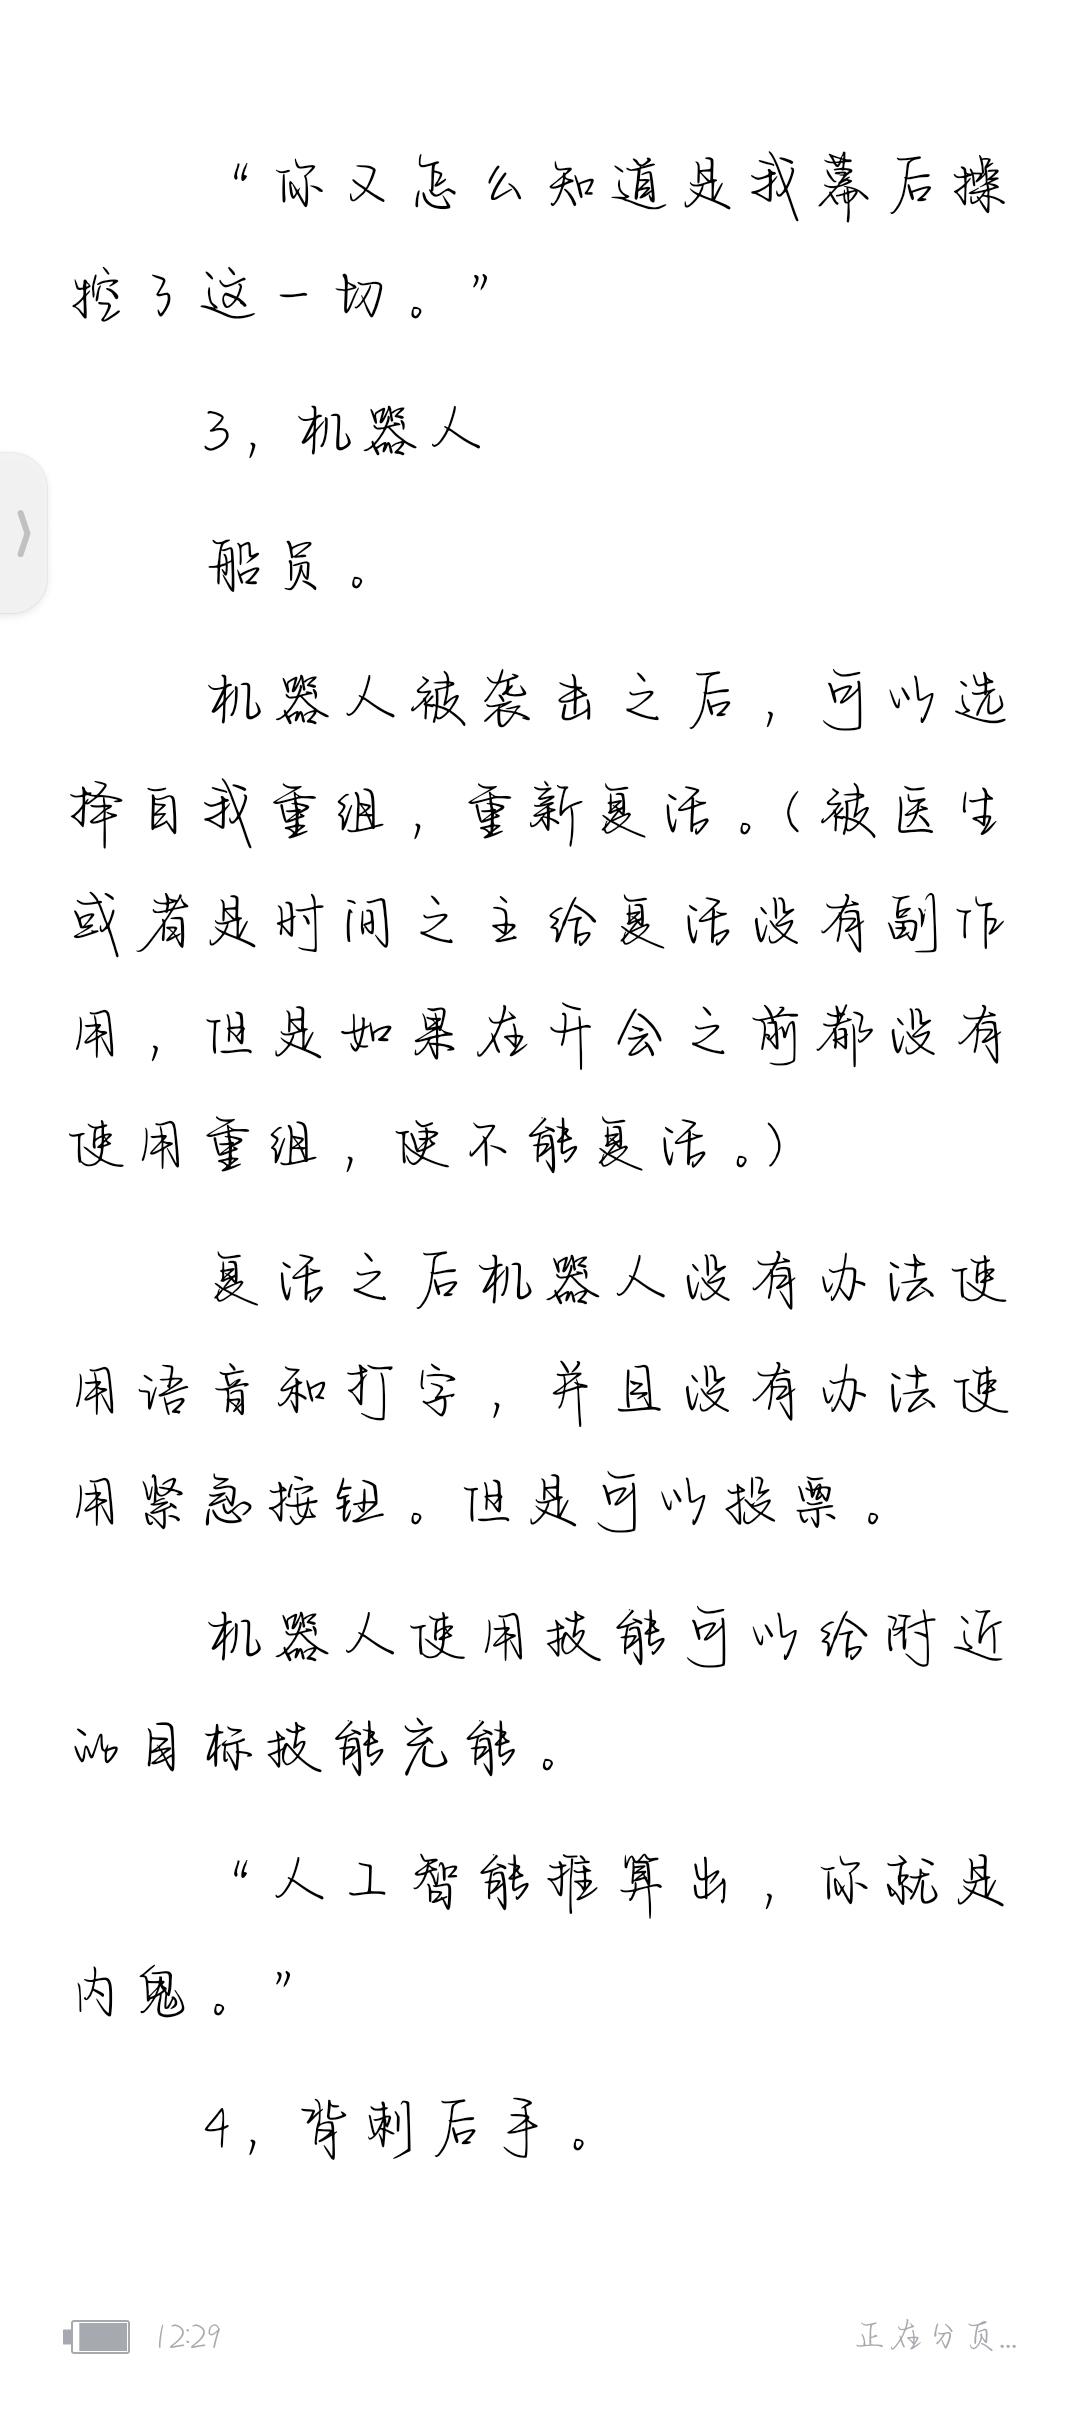 “你又怎么知道是我幕后操
控了这一切。”
3，机器人
船员。
机器人被袭击之后，可以选
择自我重组，重新复活。（被医生
或者是时间之主给复活没有副作
用，但是如果在开会之前都没有
使用重组，便不能复活。）
复活之后机器人没有办法使
用语音和打字，并且没有办法使
用紧急按钮。但是可以投票。
机器人使用技能可以给附近
的目标技能充能。
“人工智能推算出，你就是
内鬼。”
4，背刺后手。
12:29
正在分页...